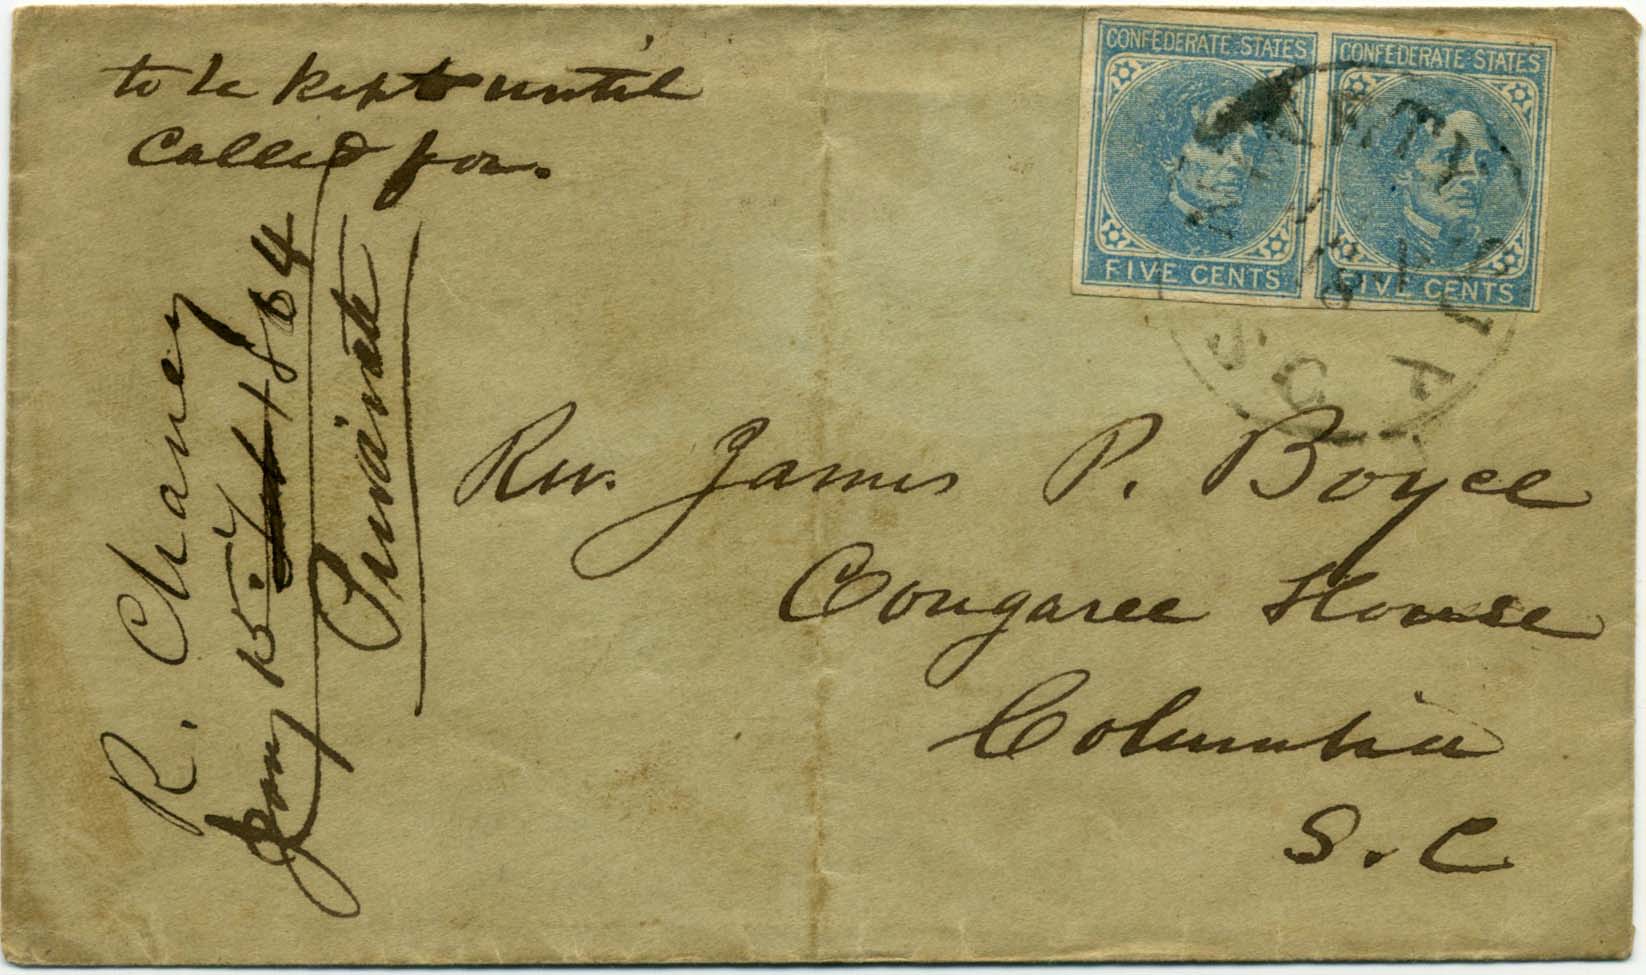 to be kept until
Called for.
CONFEDERATE STATES
FIVE CENTS
CONFEDERATE STATES
FIVE CENTS
S C
Rev. James P. Boyce
Congaree House
Columbia
S. C
R. Chaney
Jany 15th 1864
Private